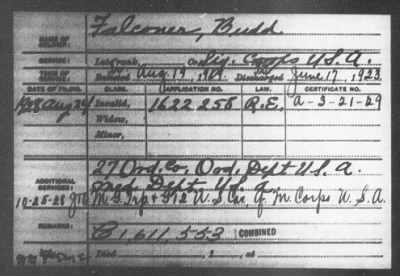 NAME OF SOLDIER: Falconer, Budd
SERVICE: Late rank, Co. Sig. Corps U.S.A.
TERM OF SERVICE: Enlisted Aug. 19, 1909 Discharged June 17, 1923
DATE OF FILING. CLASS. APPLICATION NO. LAW. CERTIFICATE NO.
1928 Aug 24 Invalid, 1622258 R.E. A-3-21-29
Widow,
Minor,
27 Ord. Co. Ord. Dept U.S.A.
ADDITIONAL SERVICES: Med. Dept. U.S.A.
10-25-28 M.G. Trp & 12 U.S. Cav. Q.M. Corps U.S.A.
REMARKS: C 1,611,553 COMBINED
Died , 1 , at